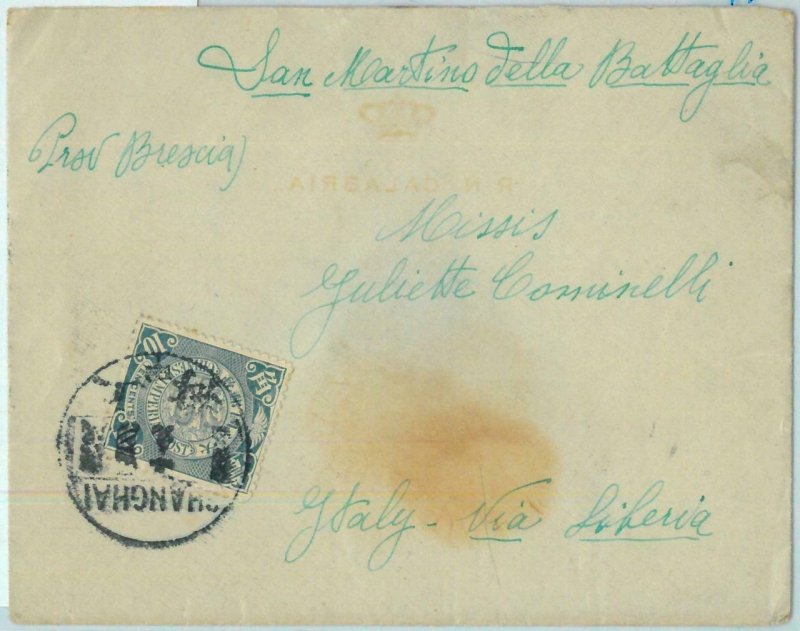 San Martino della Battaglia
(Prov Brescia)
R.N. CALABRIA
Missis
Guliette Cominelli
10
角
CENTS
SHANGHAI
Italy - Via Siberia